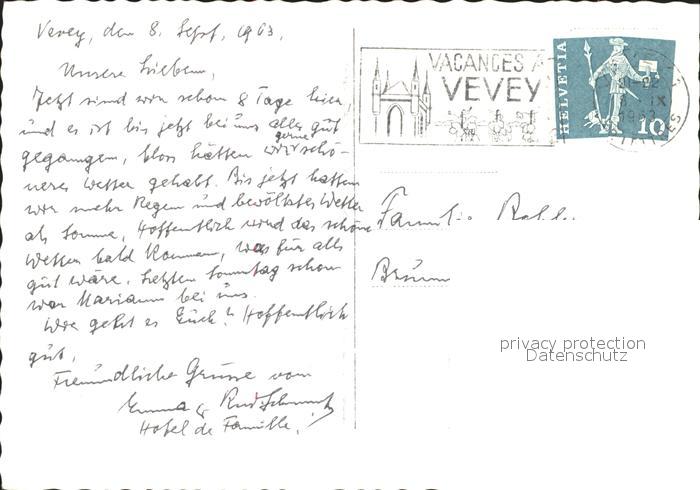 Vevey, den 8. Sept. 1963.
Unsere Lieben,
Jetzt sind wir schon 8 Tage hier,
und es ist bis jetzt bei uns alles gut
gegangen, blos hätten wir gerne schö-
neres Wetter gehabt. Bis jetzt hatten
wir mehr Regen und bewölktes Wetter
als Sonne, Hoffentlich wird das schöne
Wetter bald kommen, was für alle
gut wäre. Letzten Sonntag schon
war Mariann bei uns.
Wie geht es Euch? Hoffentlich
gut.
Freundliche Grüsse von
Emma & Rud.
Hotel de Famille.
VACANCES A
VEVEY
HELVETIA
10
IX
1963
Familie
privacy protection
Datenschutz